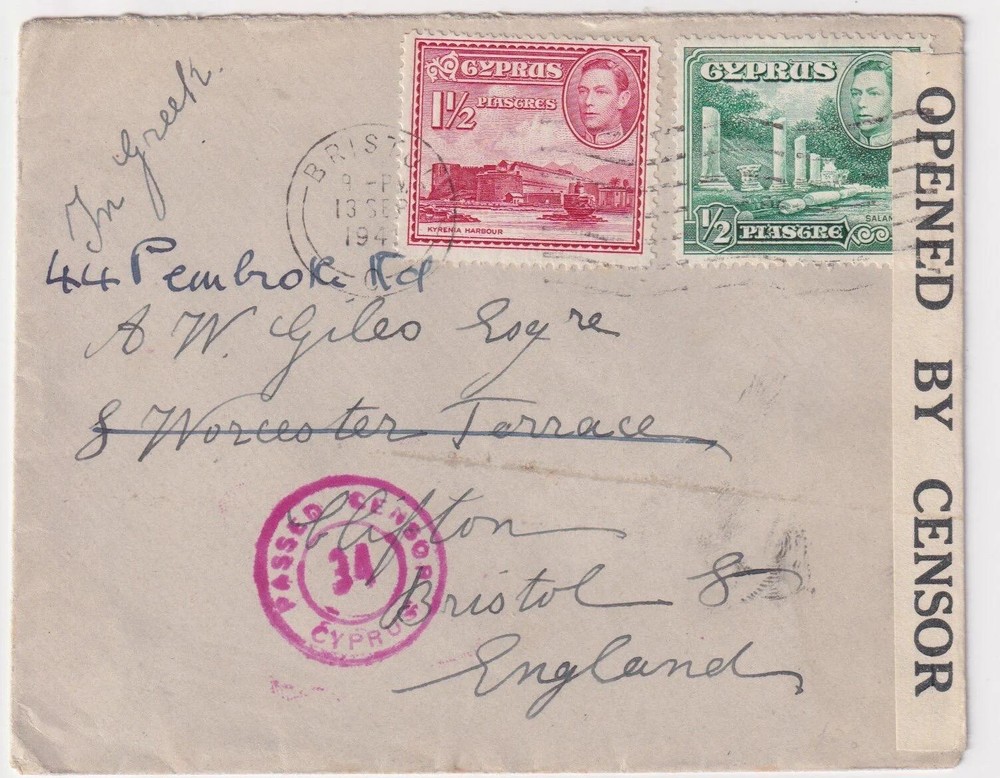 In Greek
CYPRUS
1½ PIASTRES
KYRENIA HARBOUR
CYPRUS
SALAM
½ PIASTRE
BRISTOL
PM
13 SEP
194
44 Pembroke Rd
A W. Giles Esqre
8 Worcester Terrace
Clifton
Bristol 8
England
PASSED CENSOR
34
CYPRUS
OPENED BY CENSOR